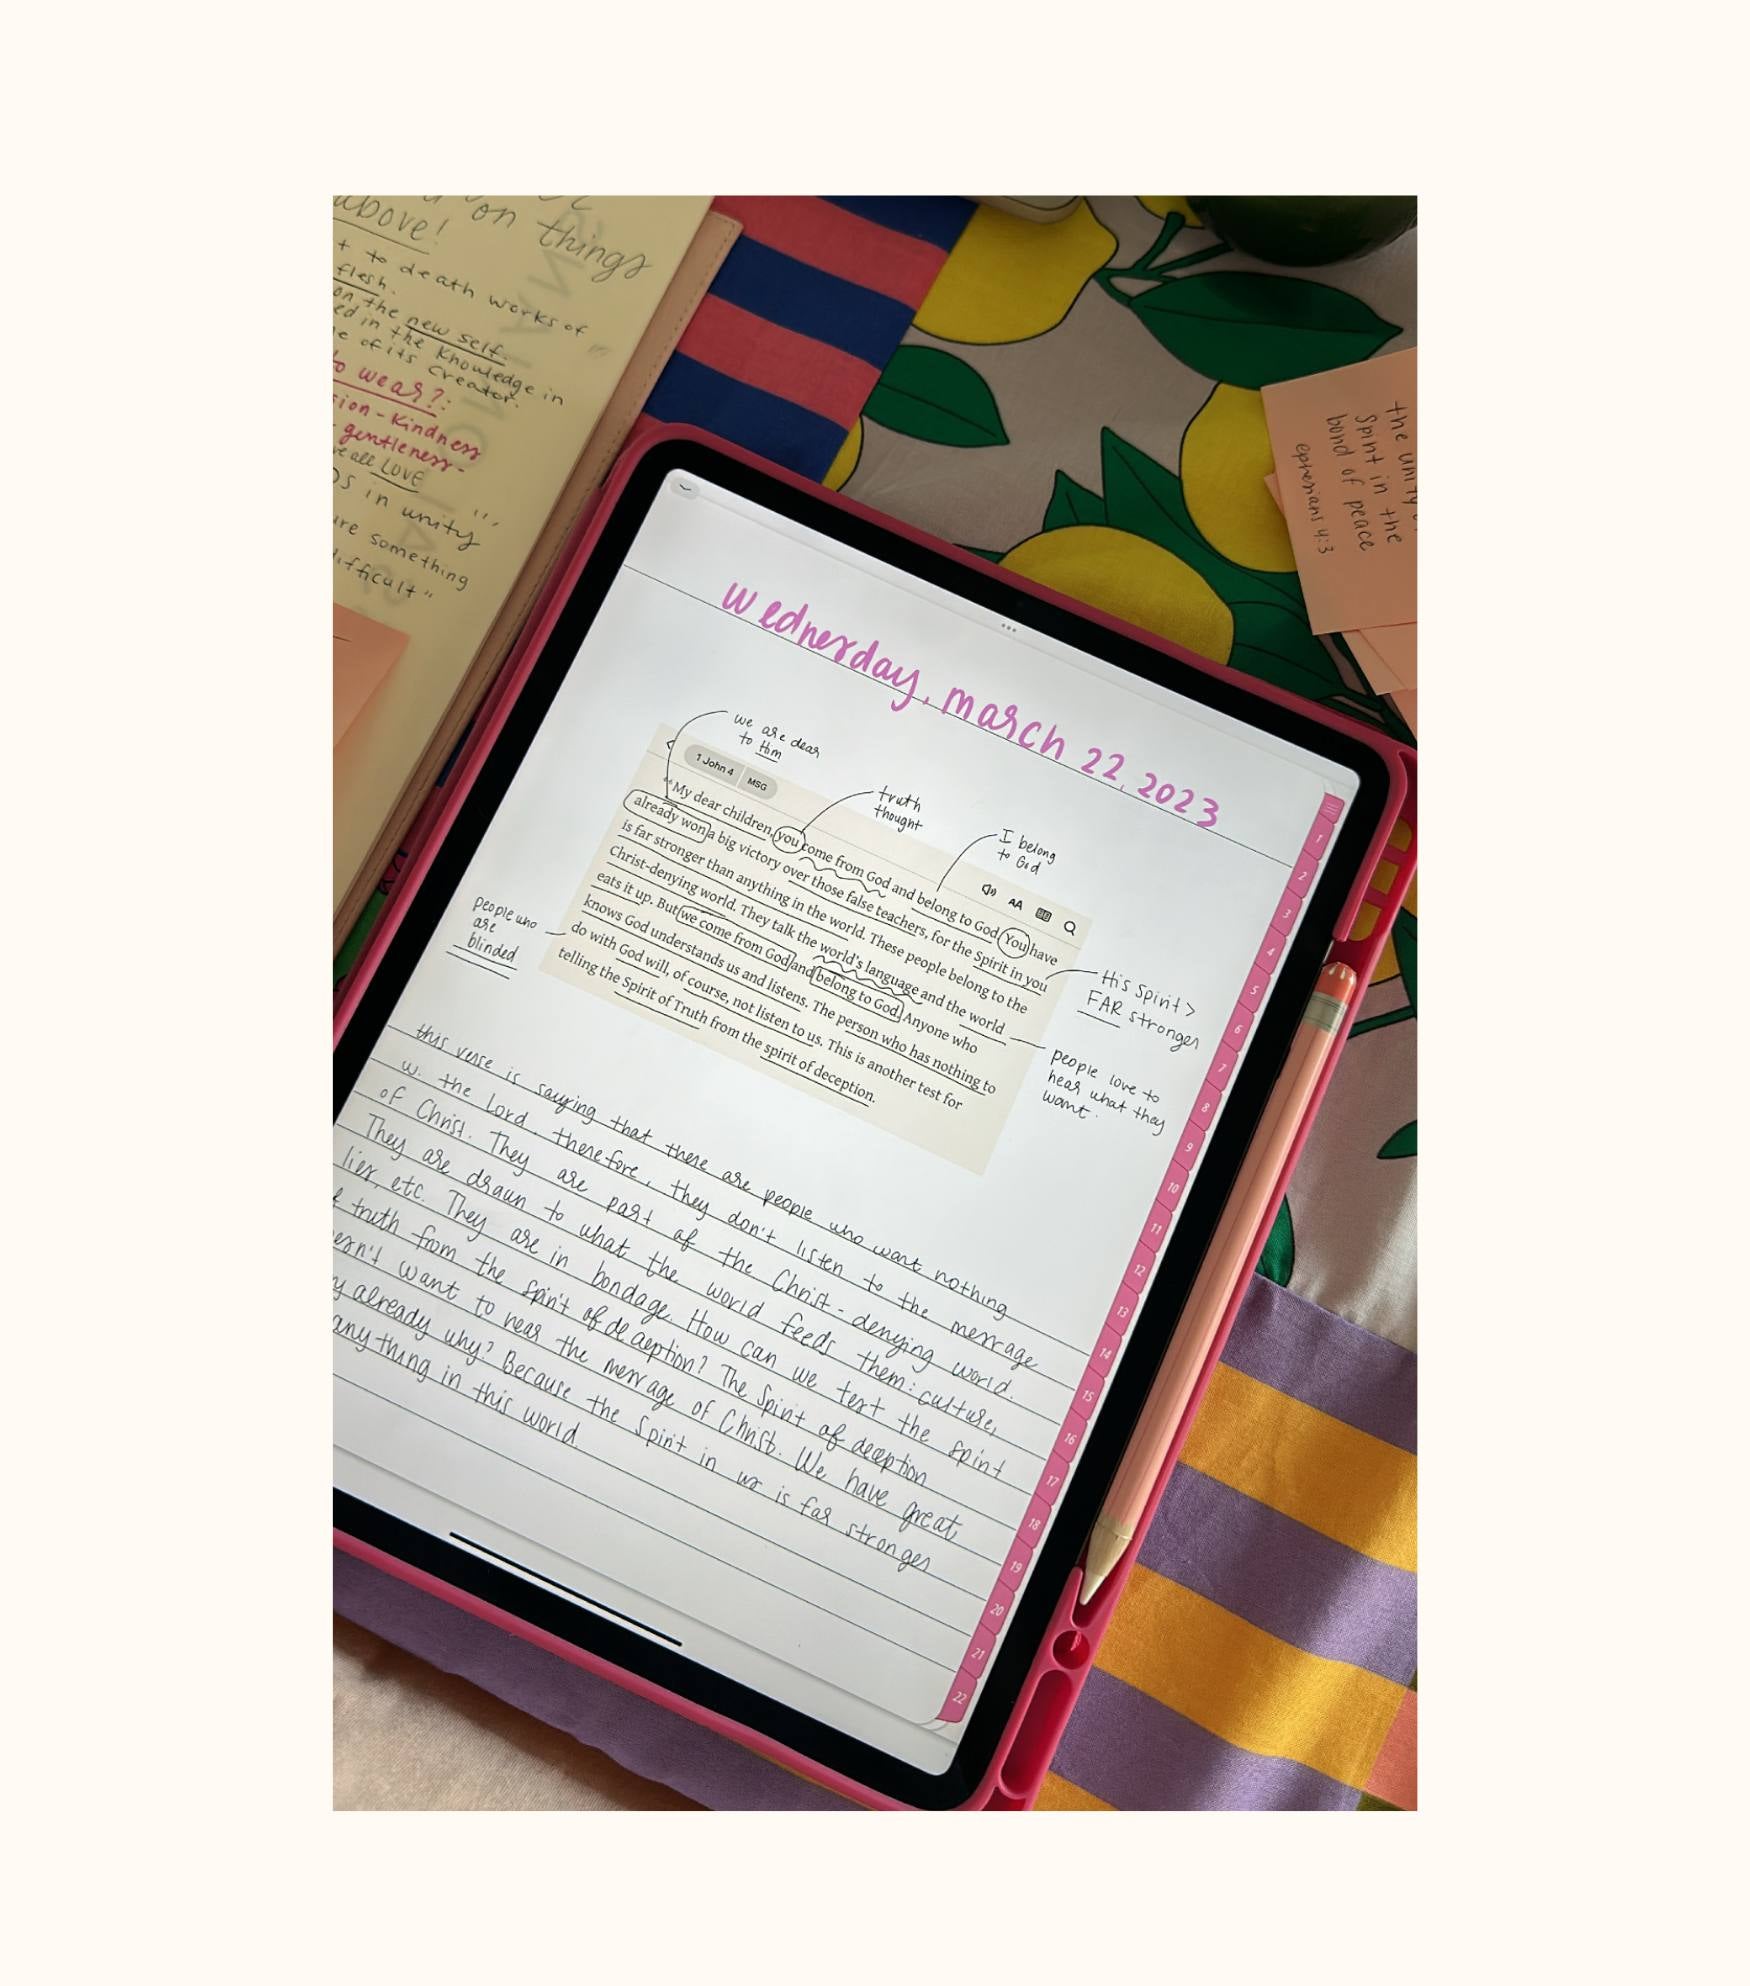 on things
above!
+ to death works of
flesh.
on the new self.
ed in the Knowledge in
e of its creator.
to wear?:
sion - Kindness
gentleness -
re all LOVE
DS in unity
are something
difficult"
the unity
Spirit in the
bond of peace
ephesians 4:3
wednesday, march 22, 2023
we are dear
to Him
truth
thought
I belong
to God
1 John 4 MSG
AA
"My dear children, you come from God and belong to God. You have
already won a big victory over those false teachers, for the Spirit in you
is far stronger than anything in the world. These people belong to the
Christ-denying world. They talk the world's language and the world
eats it up. But we come from God and belong to God. Anyone who
knows God understands us and listens. The person who has nothing to
do with God will, of course, not listen to us. This is another test for
telling the Spirit of Truth from the spirit of deception.
people who
are
blinded
His Spirit >
FAR stronger
people love to
hear what they
want.
this verse is saying that there are people who want nothing
w. the Lord, therefore, they don't listen to the message
of Christ. They are part of the Christ-denying world.
They are drawn to what the world feeds them: culture,
lies, etc. They are in bondage. How can we test the spirit
truth from the spirit of deception? The Spirit of deception
esn't want to hear the message of Christ. We have great
y already why? Because the Spirit in us is far stronger
anything in this world.
1
2
3
4
5
6
7
8
9
10
11
12
13
14
15
16
17
18
19
20
21
22